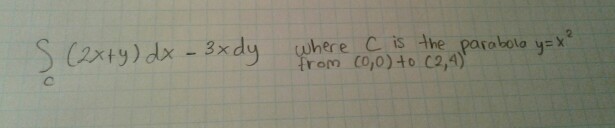 ∫_C (2x+y) dx - 3x dy where C is the parabola y=x²
from (0,0) to (2,4)